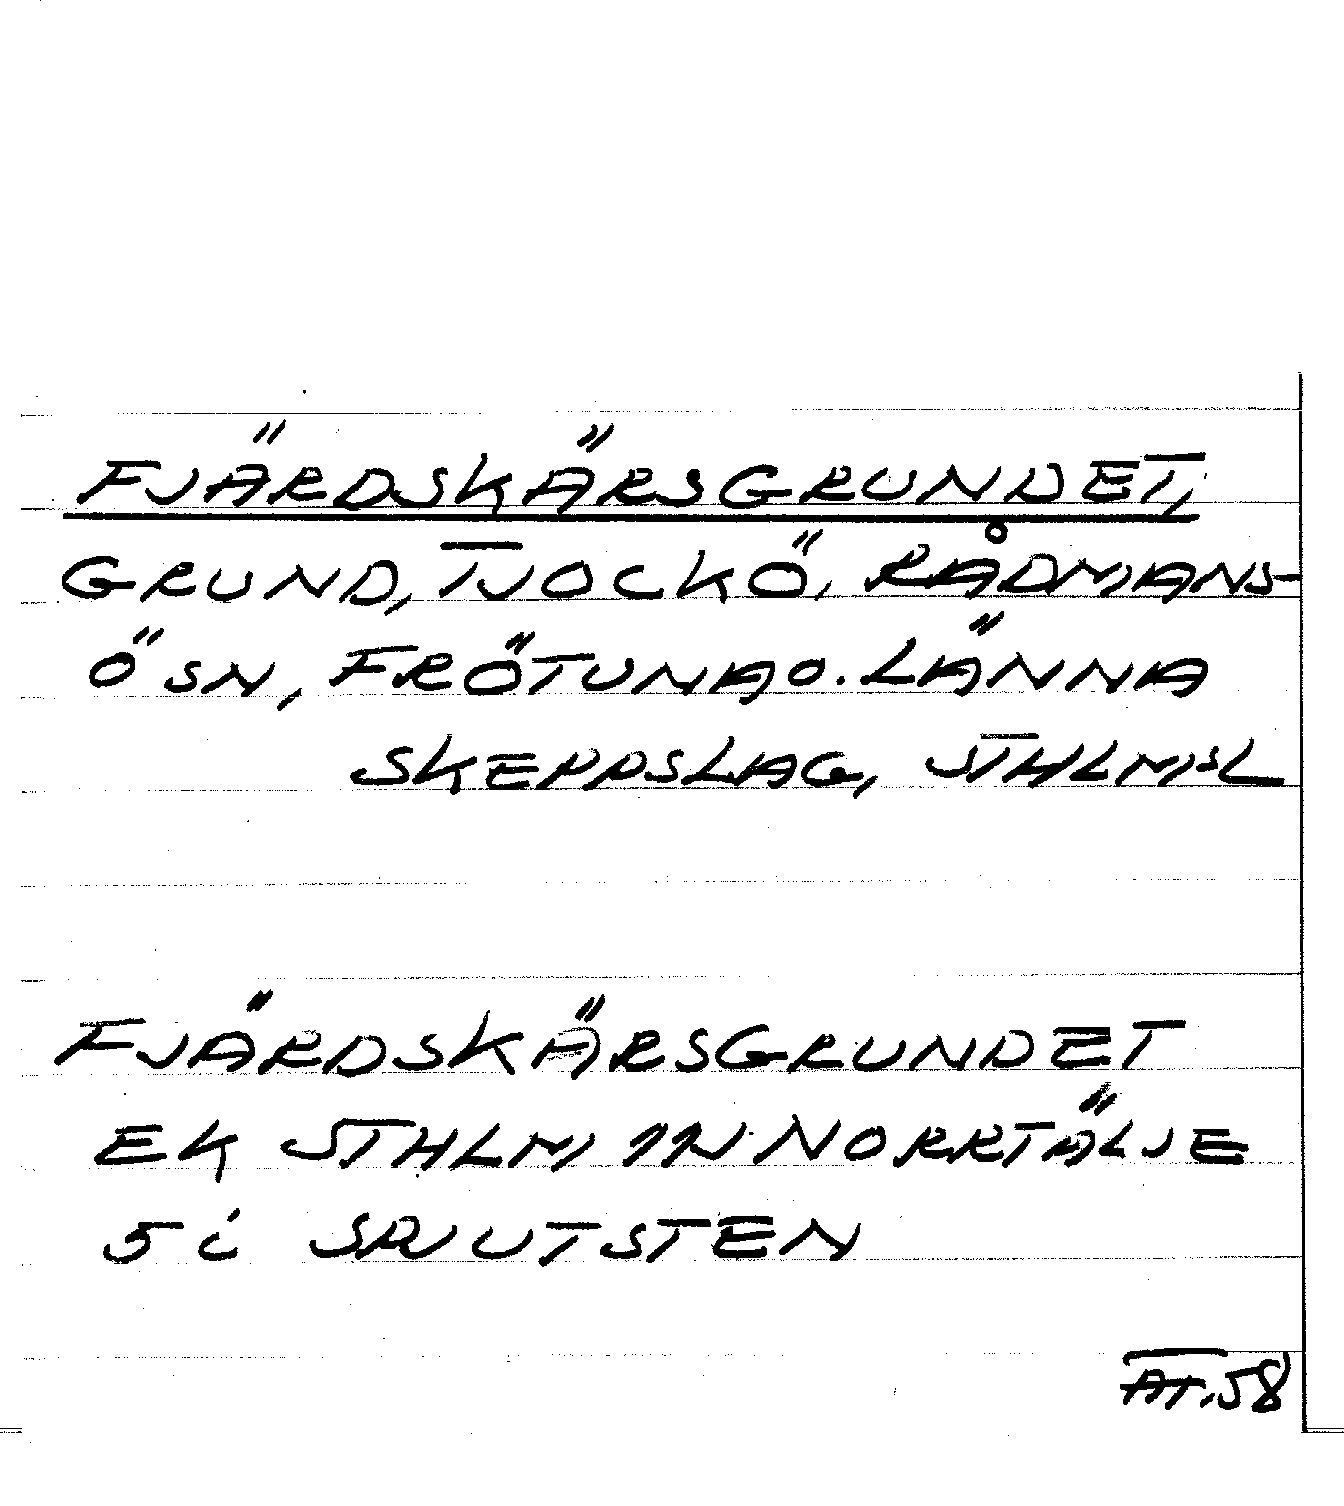 FJÄRDSKÄRSGRUNDET,
GRUND, TJOCKÖ, RÅDMANS-
Ö SN, FRÖTUNA O. LÄNNA
SKEPPSLAG, STHLMSL
FJÄRDSKÄRSGRUNDET
EK STHLM IN NORRTÄLJE
5 C SPJUTSTEN
AT. 58